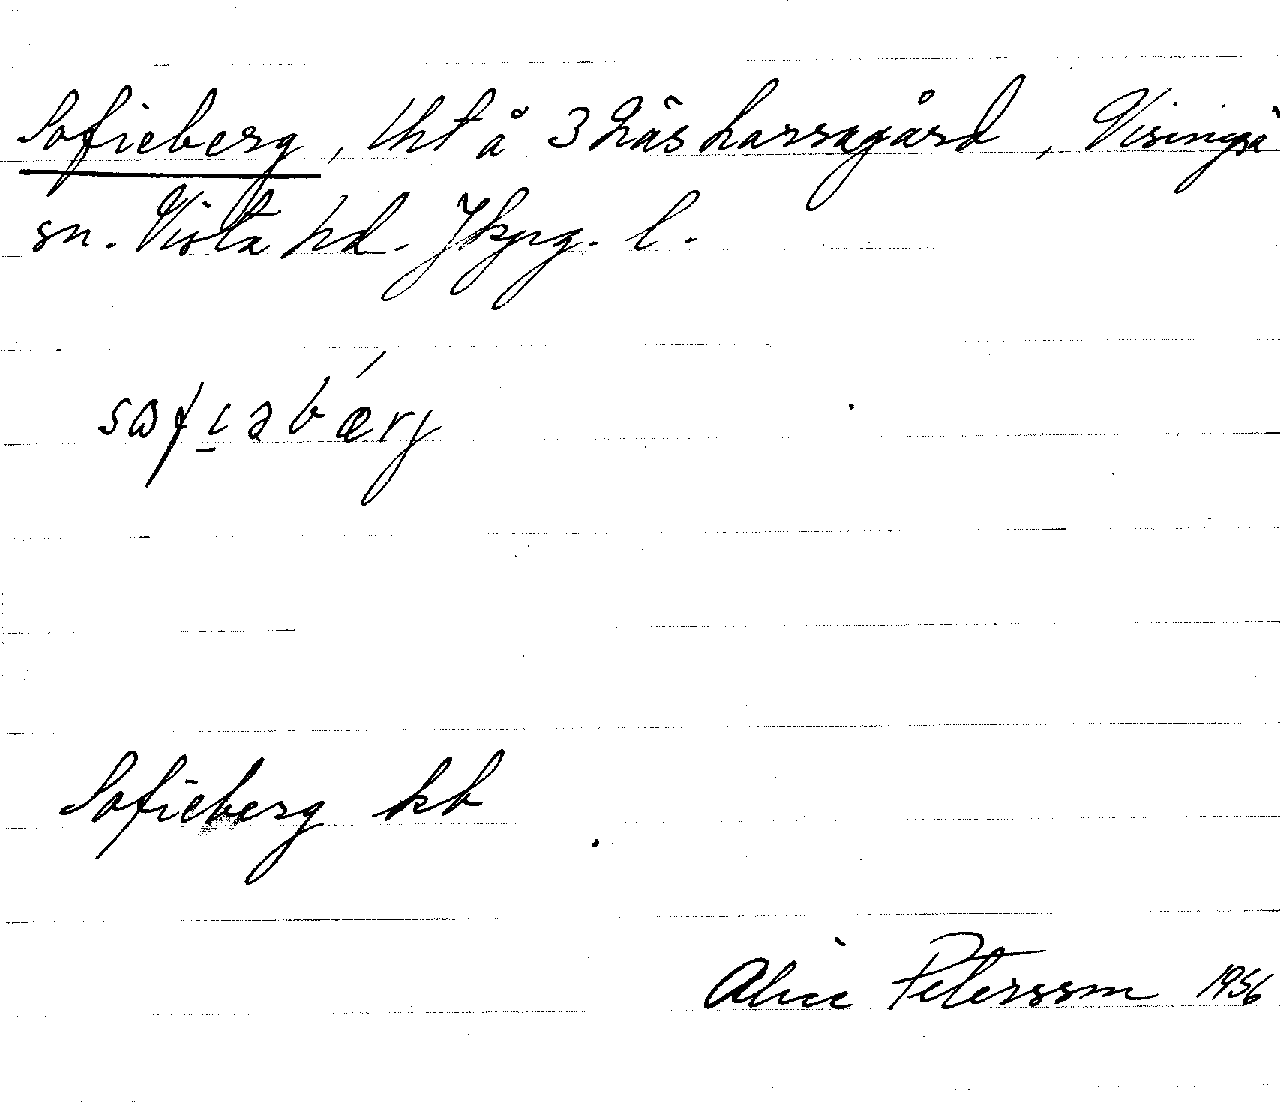 Sofieberg, lht å 3 Näs Larsagård, Visingsö
sn. Vista hd. Jkpg. l.
sɷfi̱əbǽrj
Sofieberg kb
Alice Petersson 1956